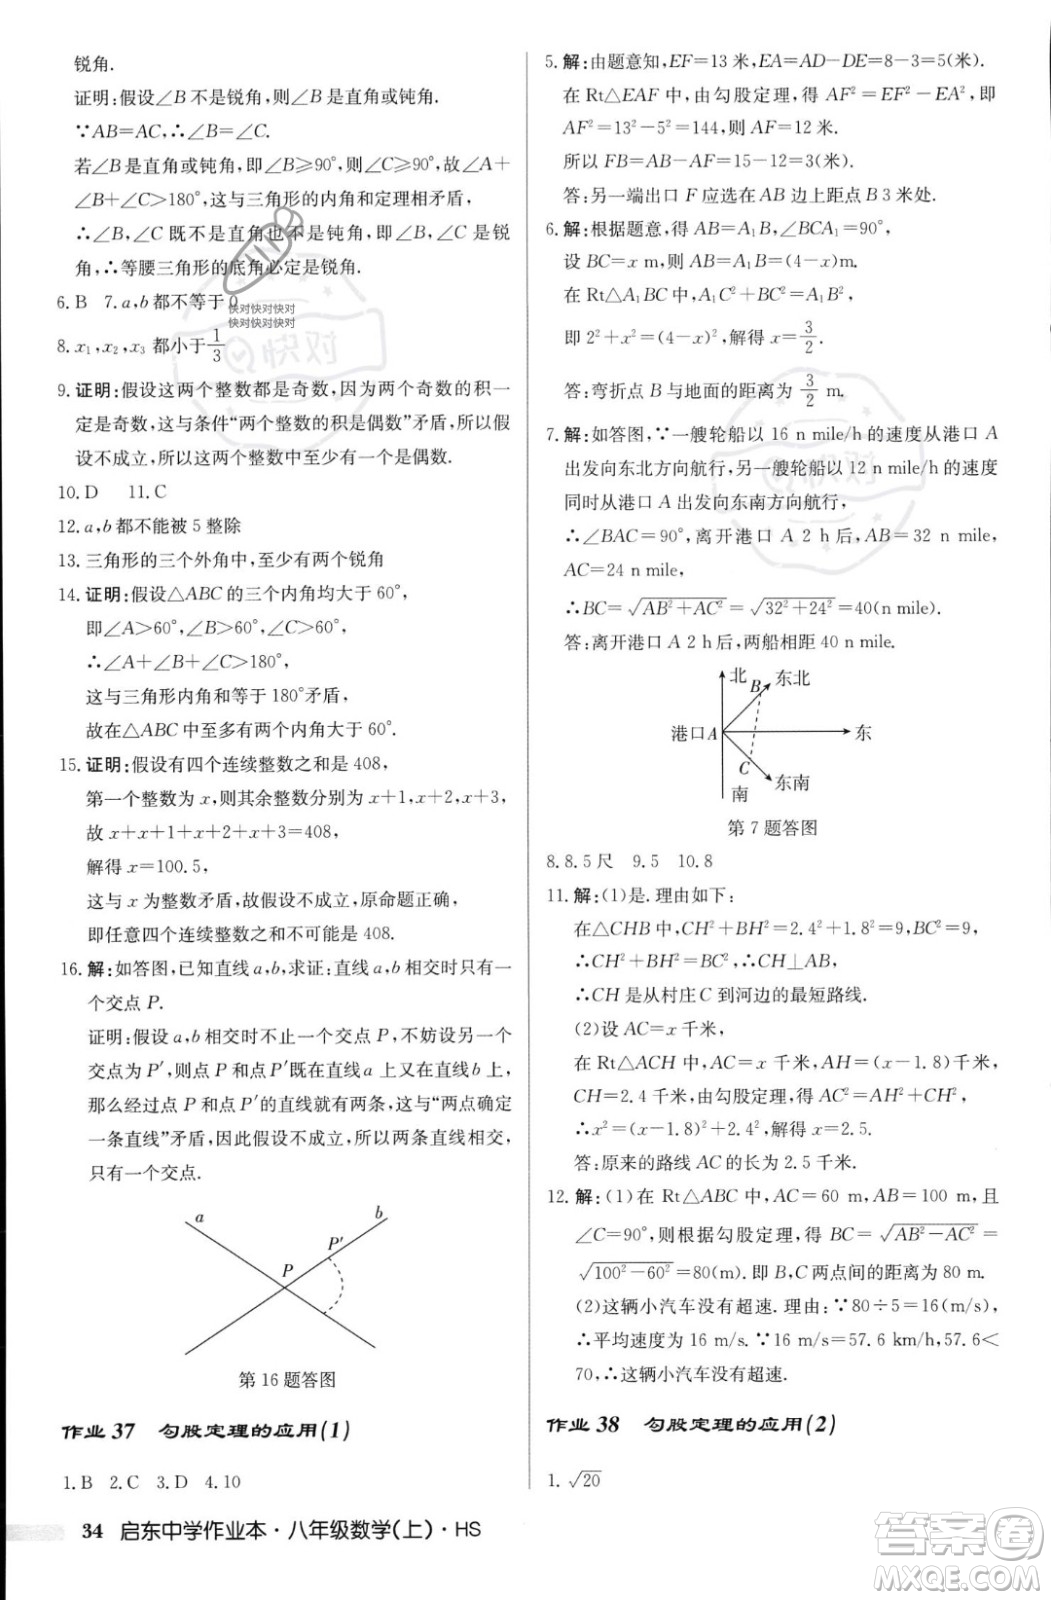 锐角.
证明:假设∠B不是锐角,则∠B是直角或钝角.
∵AB=AC,∴∠B=∠C.
若∠B是直角或钝角,即∠B≥90°,∠C≥90°,故∠A+
∠B+∠C>180°,这与三角形的内角和定理相矛盾,
∴∠B,∠C既不是直角也不是钝角,即∠B,∠C是锐
角,∴等腰三角形的底角必定是锐角.
6.B 7.a,b都不等于0
快对快对快对
快对快对快对
8.x₁,x₂,x₃都小于1/3
快对
9.证明:假设这两个整数都是奇数,因为两个奇数的积一
定是奇数,这与条件“两个整数的积是偶数”矛盾,所以假
设不成立,所以这两个整数中至少有一个是偶数.
10.D 11.C
12.a,b都不能被5整除
13.三角形的三个外角中,至少有两个锐角
14.证明:假设△ABC的三个内角均大于60°,
即∠A>60°,∠B>60°,∠C>60°,
∴∠A+∠B+∠C>180°,
这与三角形内角和等于180°矛盾,
故在△ABC中至多有两个内角大于60°.
15.证明:假设有四个连续整数之和是408,
第一个整数为x,则其余整数分别为x+1,x+2,x+3,
故x+x+1+x+2+x+3=408,
解得x=100.5,
这与x为整数矛盾,故假设不成立,原命题正确,
即任意四个连续整数之和不可能是408.
16.解:如答图,已知直线a,b,求证:直线a,b相交时只有一
个交点P.
证明:假设a,b相交时不止一个交点P,不妨设另一个
交点为P′,则点P和点P′在直线a上又在直线b上,
那么经过点P和点P′的直线就有两条,这与“两点确定
一条直线”矛盾,因此假设不成立,所以两条直线相交,
只有一个交点.
a
b
P′
P
第16题答图
作业37 勾股定理的应用(1)
1.B 2.C 3.D 4.10
5.解:由题意知,EF=13米,EA=AD-DE=8-3=5(米).
在Rt△EAF中,由勾股定理,得AF²=EF²-EA²,即
AF²=13²-5²=144,则AF=12米.
所以FB=AB-AF=15-12=3(米).
答:另一端出口F应选在AB边上距点B 3米处.
6.解:根据题意,得AB=A₁B,∠BCA₁=90°,
设BC=x m,则AB=A₁B=(4-x)m.
在Rt△A₁BC中,A₁C²+BC²=A₁B²,
即2²+x²=(4-x)²,解得x=3/2.
答:弯折点B与地面的距离为3/2 m.
7.解:如答图,∵一艘轮船以16 n mile/h的速度从港口A
出发向东北方向航行,另一艘轮船以12 n mile/h的速度
快对
同时从港口A出发向东南方向航行,
∴∠BAC=90°,离开港口A 2 h后,AB=32 n mile,
AC=24 n mile,
∴BC=√(AB²+AC²)=√(32²+24²)=40(n mile).
答:离开港口A 2 h后,两船相距40 n mile.
北
B
东北
港口A
东
C
东南
南
第7题答图
8.8.5尺 9.5 10.8
11.解:(1)是.理由如下:
在△CHB中,CH²+BH²=2.4²+1.8²=9,BC²=9,
∴CH²+BH²=BC²,∴CH⊥AB,
∴CH是从村庄C到河边的最短路线.
(2)设AC=x千米,
在Rt△ACH中,AC=x千米,AH=(x-1.8)千米,
CH=2.4千米,由勾股定理,得AC²=AH²+CH²,
∴x²=(x-1.8)²+2.4²,解得x=2.5.
答:原来的路线AC的长为2.5千米.
12.解:(1)在Rt△ABC中,AC=60 m,AB=100 m,且
∠C=90°,则根据勾股定理,得BC=√(AB²-AC²)=
√(100²-60²)=80(m).即B,C两点间的距离为80 m.
(2)这辆小汽车没有超速.理由:∵80÷5=16(m/s),
∴平均速度为16 m/s.∵16 m/s=57.6 km/h,57.6<
70,∴这辆小汽车没有超速.
作业38 勾股定理的应用(2)
1.√20
34 启东中学作业本·八年级数学(上)·HS
答案圈
MXQE.COM